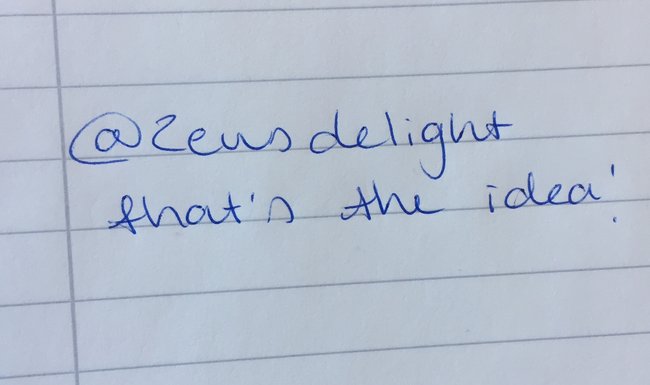 @zeusdelight
that's the idea!